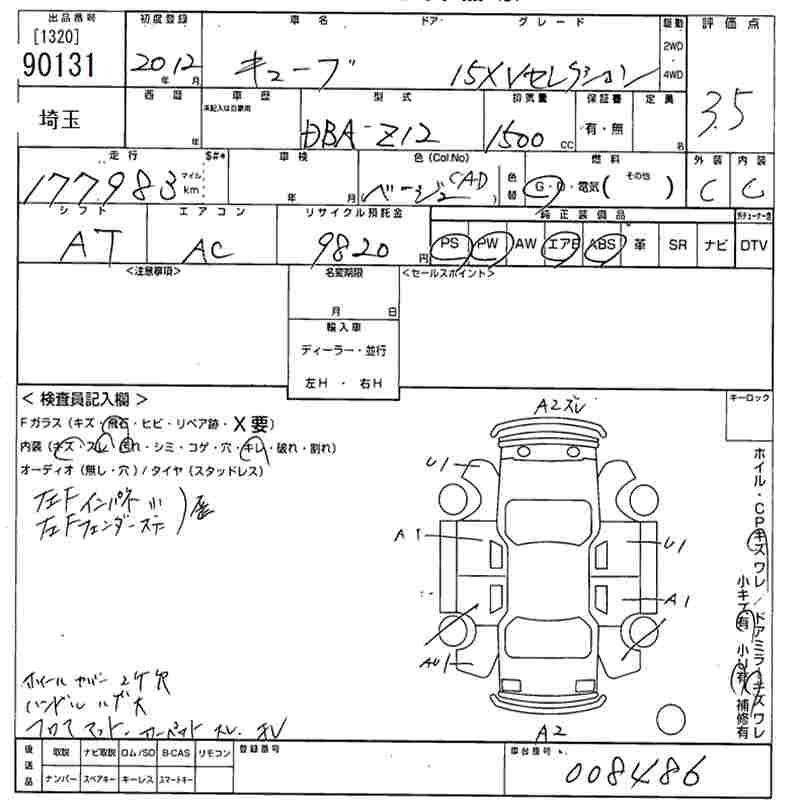 出品番号 初度登録 車名 ドア グレード 駆動 評価点
[1320]
90131 2012 年 月 キューブ 15X Vセレクション 2WD ・ 4WD 3.5
埼玉 西暦 年 車歴 未記入は自家用 型式 排気量 保証書 定員
DBA-Z12 1500 cc 有・無 名
走行 $#* 車検 色(Col.No) 色替 燃料 外装 内装
177,983 マイル km 年 月 ベージュ CAD G・D・電気( その他 ) C C
シフト エアコン リサイクル預託金 純正装備品
AT AC 9820 円 PS PW AW エアB ABS 革 SR ナビ DTV
<注意事項> 名変期限 <セールスポイント>
月 日
輸入車
ディーラー・並行
左H ・ 右H
< 検査員記入欄 > キーロック
Fガラス (キズ・飛石・ヒビ・リペア跡・X要)
内装 (キズ・スレ・汚れ・シミ・コゲ・穴・キレ・破れ・割れ)
オーディオ (無し・穴) / タイヤ (スタッドレス)
左Fインパネ
左Fフェンダーステ
A2ズレ
U1
A1 U1
A1
AU1
A2
ホイール・CPキズワレ / ドアミラーキズワレ
小キズ有 小U有 補修有
ホイールカバー 2ケ欠
ハンドル ハゲ大
フロアマット カーペット スレ キレ
後送品 取説 ナビ取説 ロム/SD B-CAS リモコン 登録番号 車台番号
ナンバー スペアキー キーレス スマートキー 008486